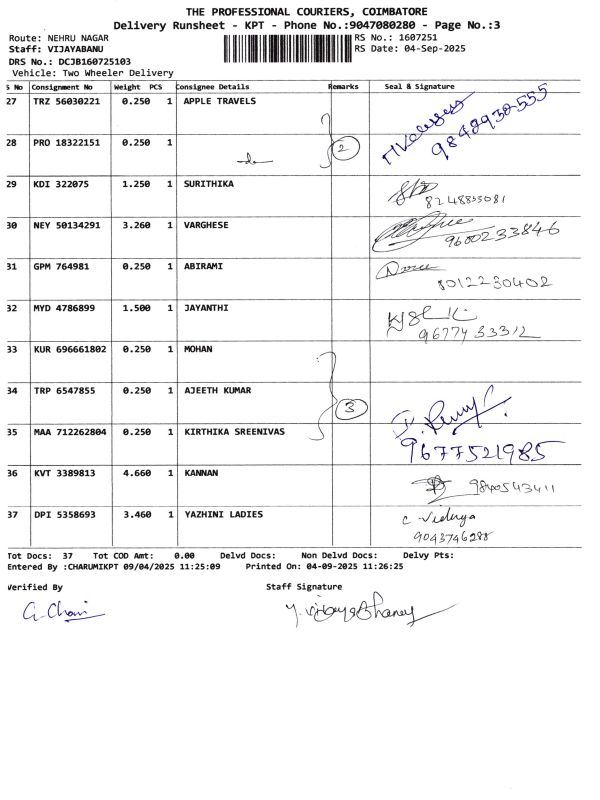 THE PROFESSIONAL COURIERS, COIMBATORE
Delivery Runsheet - KPT - Phone No.:9047080280 - Page No.:3
Route: NEHRU NAGAR
RS No.: 1607251
Staff: VIJAYABANU
RS Date: 04-Sep-2025
DRS No.: DCJB160725103
Vehicle: Two Wheeler Delivery
S No Consignment No Weight PCS Consignee Details Remarks Seal & Signature
27 TRZ 56030221 0.250 1 APPLE TRAVELS
28 PRO 18322151 0.250 1 2
29 KDI 322075 1.250 1 SURITHIKA
8248855081
30 NEY 50134291 3.260 1 VARGHESE
9600233846
31 GPM 764981 0.250 1 ABIRAMI
8012230402
32 MYD 4786899 1.500 1 JAYANTHI
9677433312
33 KUR 696661802 0.250 1 MOHAN
34 TRP 6547855 0.250 1 AJEETH KUMAR
3
35 MAA 712262804 0.250 1 KIRTHIKA SREENIVAS
9677521985
36 KVT 3389813 4.660 1 KANNAN 9840543411
37 DPI 5358693 3.460 1 YAZHINI LADIES
9043746288
Tot Docs: 37 Tot COD Amt: 0.00 Delvd Docs: Non Delvd Docs: Delvy Pts:
Entered By :CHARUMIKPT 09/04/2025 11:25:09 Printed On: 04-09-2025 11:26:25
Verified By Staff Signature